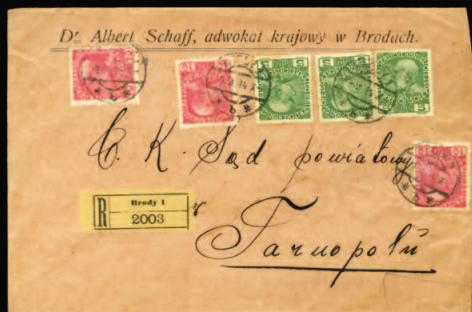 Dr. Albert Schaff, adwokat krajowy w Brodach.
C. K. Sąd powiatowy
w
Tarnopolu
R
Brody 1
2003